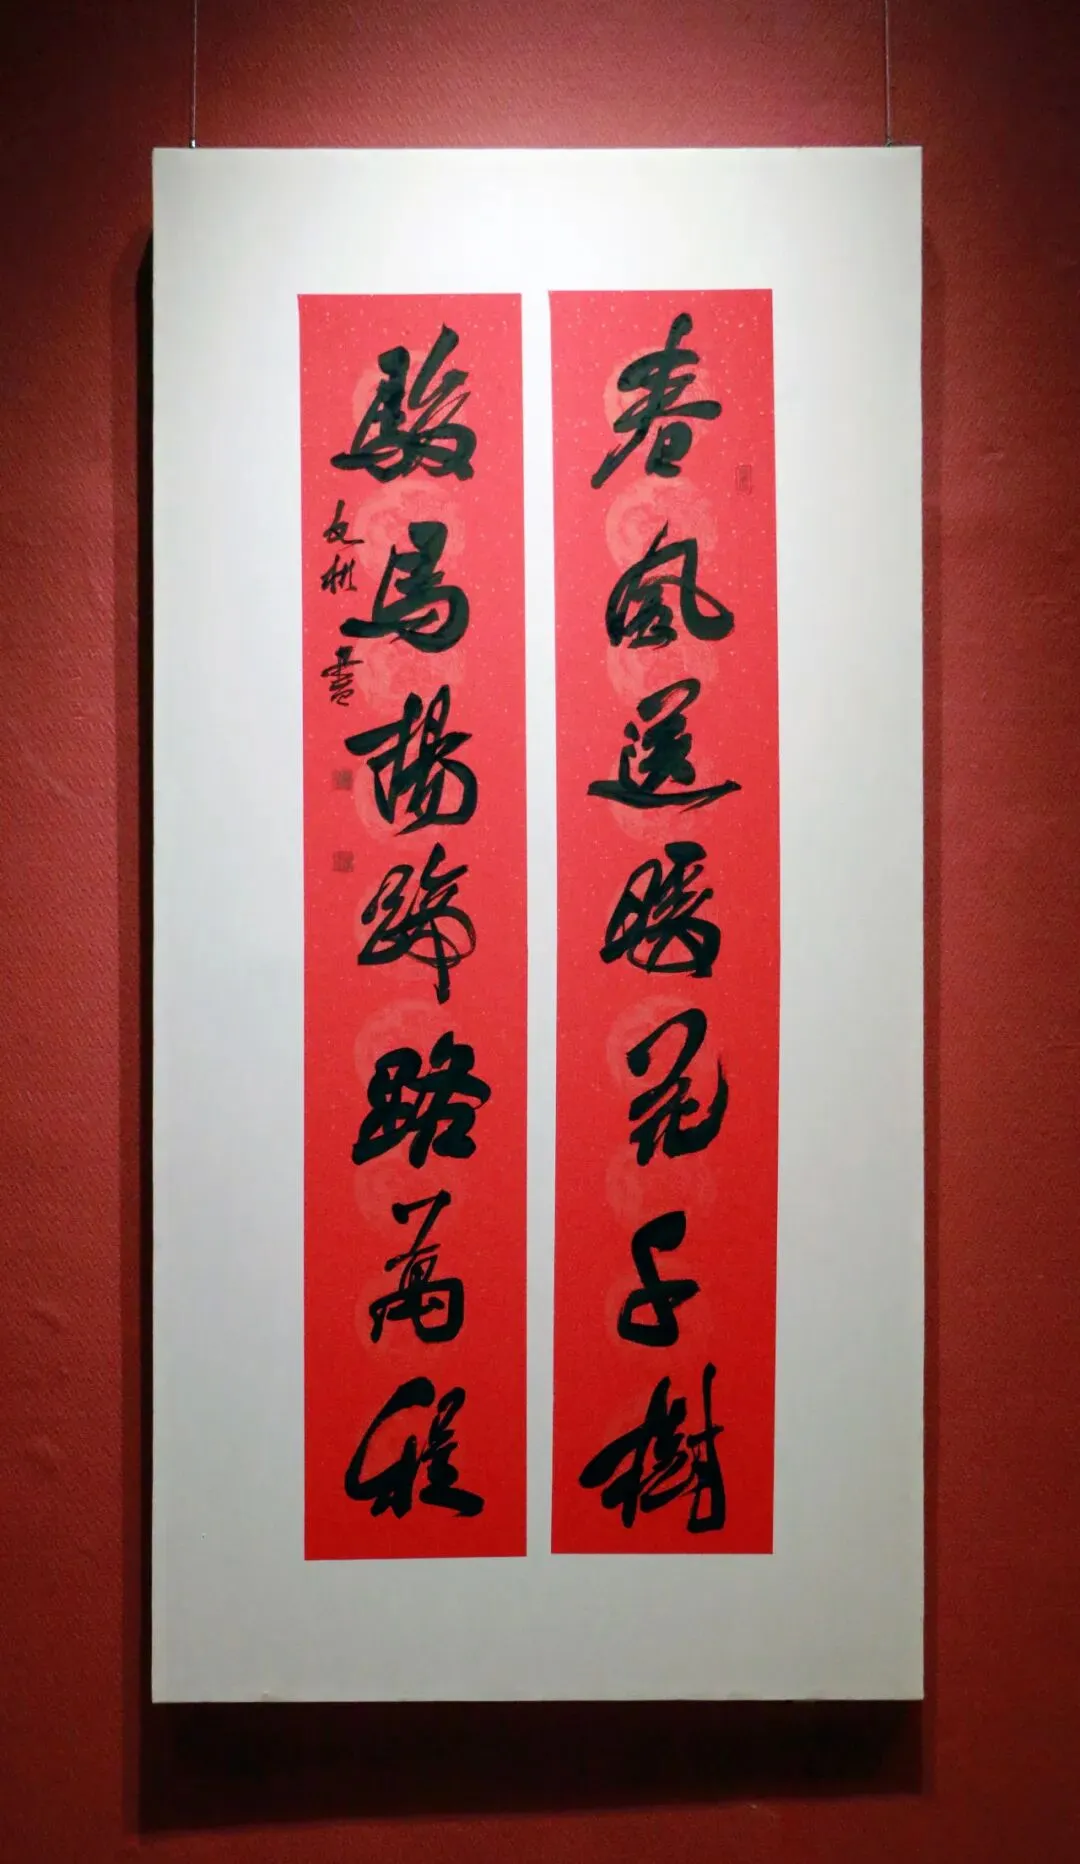 春風送暖花千樹
駿馬揚蹄路萬程